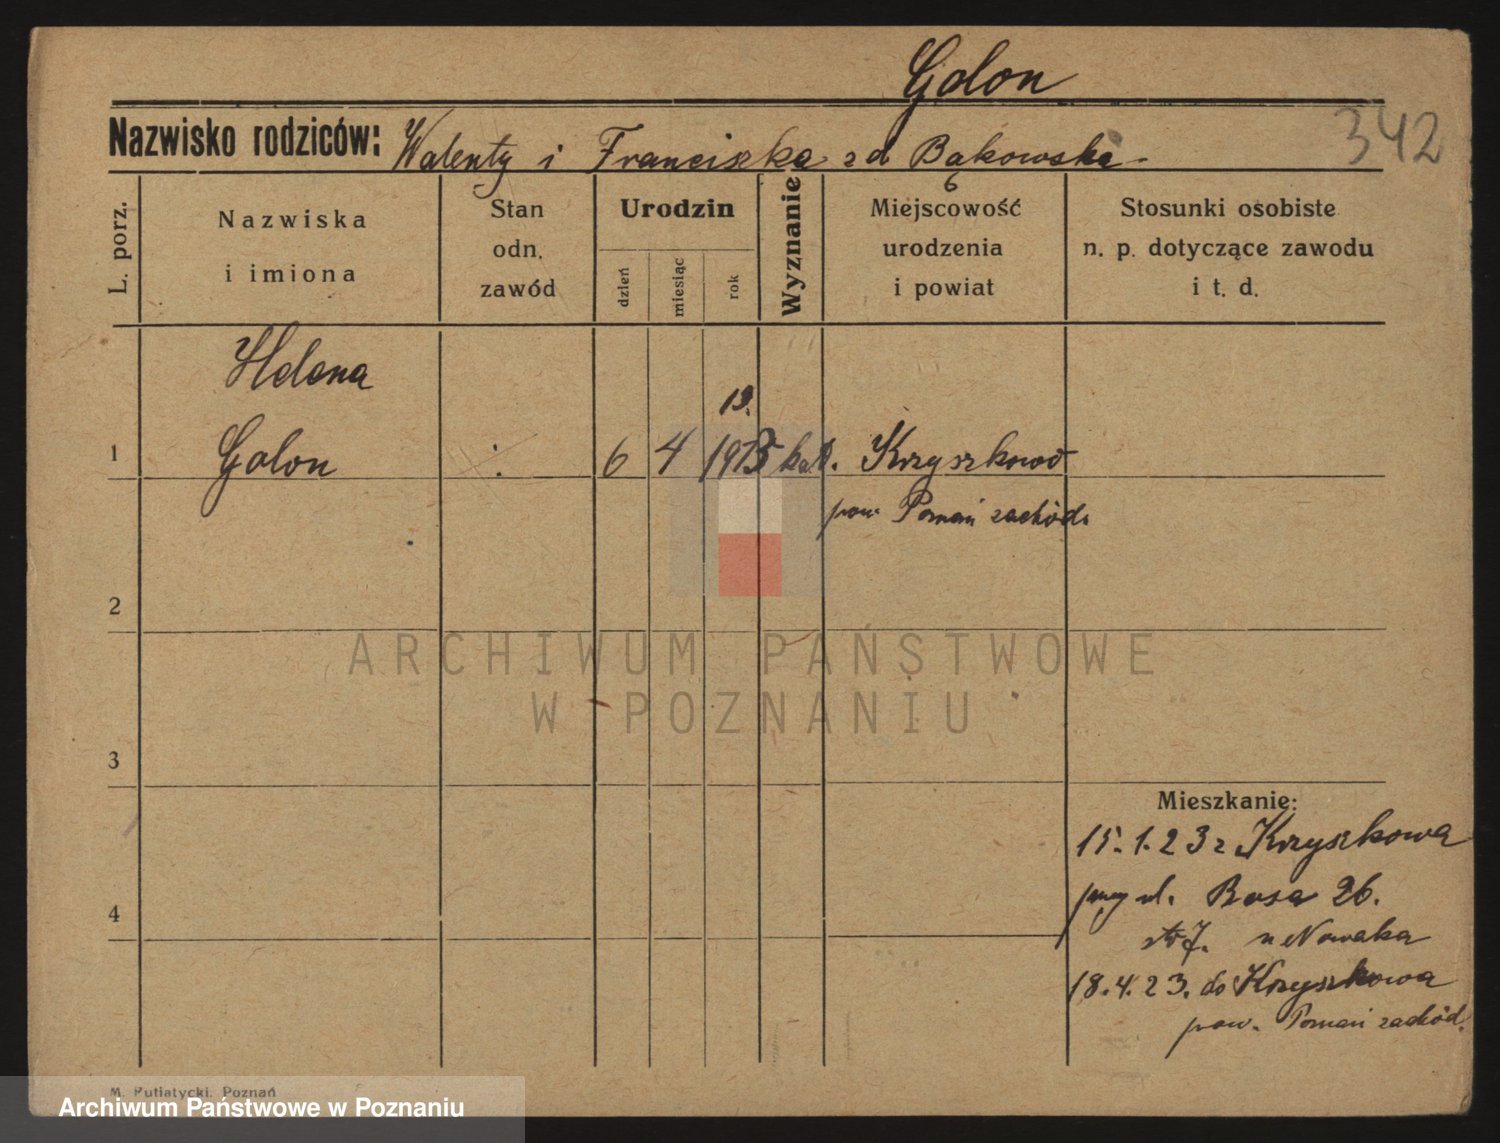 Golon
342
Nazwisko rodziców: Walenty i Franciszka z d Bąkowska
L. porz.
Nazwiska
i imiona
Stan
odn.
zawód
Urodzin
dzień
miesiąc
rok
Wyznanie
Miejscowość
urodzenia
i powiat
Stosunki osobiste
n. p. dotyczące zawodu
i t. d.
Helena
13.
1 Golon 6 4 kat. Krzyszkowo
pow. Poznań zachód.
2
3
4
Mieszkanie:
15.1.23 z Krzyszkowa
przy ul. Bosa 26.
u Nowaka
18.4.23. do Krzyszkowa
pow. Poznań zachód.
M. Putiatycki, Poznań
ARCHIWUM PAŃSTWOWE
W POZNANIU
Archiwum Państwowe w Poznaniu